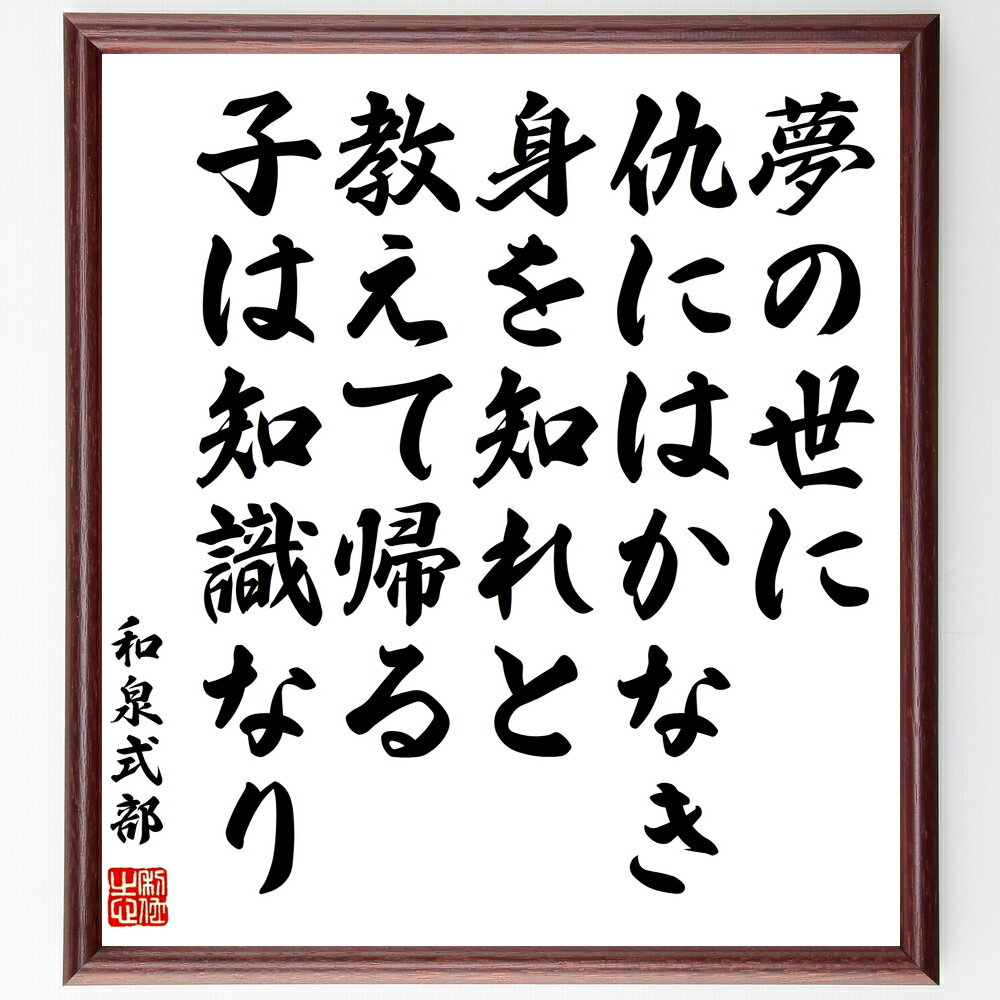 夢の世に
仇にはかなき
身を知れと
教えて帰る
子は知識なり
和泉式部